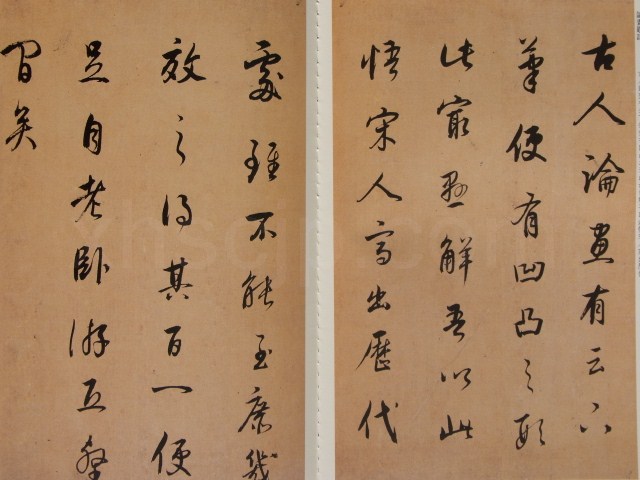 古人論畫有云下
筆便有凹凸之形
此最懸解吾以此
悟宋人高出歷代
處雖不能至庶幾
效之得其百一便
足自老臥游丘壑
間矣